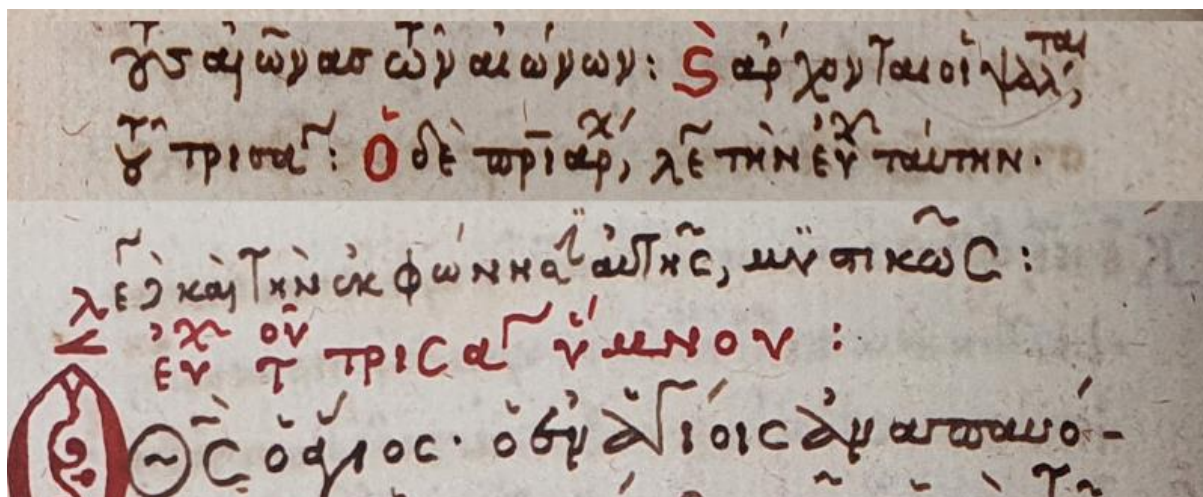 τοὺς αἰῶνας τῶν αἰώνων: Ϛ̀ ἄρχονται οἱ ψάλται,
τοῦ τρισαγ͂: Ὁ δὲ πριάρχ, λέ τὴν εὐχ ταύτην.
καὶ τὴν ἐκφώνησ αὐτῆς, μυστικῶς:
εὐχ τοῦ τρισαγ͂ ὕμνου:
Ὁ Θς ὁ ἅγιος· ὁ ἐν ἁγίοις ἀναπαυό-